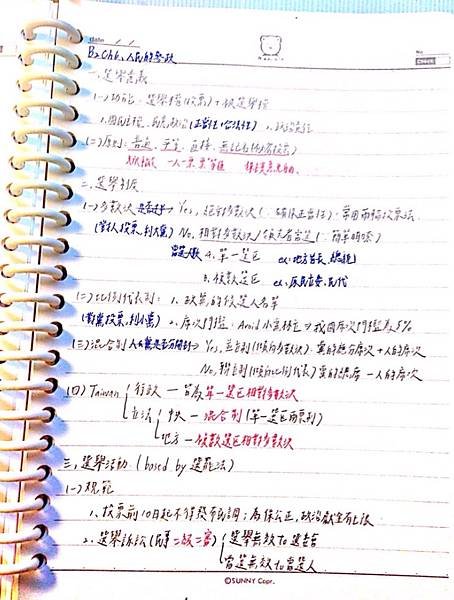 date / /
No.
B2 Ch6. 人民的參政
一、選舉意義
(一)功能：選舉權(投票)+被選舉權
1.國民主權、民意政治(正當性、合法性) 2.政治責任
(二)原則：普通、平等、直接、無記名(祕密投票)
一人一票票等值
二、選舉制度
(一)多數決 是否過半→Yes, 絕對多數決(：確保正當性)：常用兩輪投票法.
(對人投票,利大黨) No, 相對多數決/領先者當選(：簡單明瞭)
當選人數 A.單一選區 ex.地方首長、總統
B.複數選區 ex.原民立委、民代
(二)比例代表制：1、政黨的候選人名單
(對黨投票,利小黨) 2、席次門檻：Avoid小黨林立→我國席次門檻為5%
(三)混合制 人&黨是否分開計→Yes, 並立制(傾向多數決)：黨的總分席次+人的席次
No, 聯立制(傾向比例代表)：黨的總席－人的席次
(四) Taiwan 行政－皆為單一選區相對多數決
立法 中央－混合制(單一選區兩票制)
地方－複數選區相對多數決
三、選舉活動(based by 選罷法)
(一)規範
1、投票前10日起不得發布民調；為保公正,政治獻金有上限
2、選舉訴訟(民事二級二審) 選舉無效 to 選委會
當選無效 to 當選人
©SUNNY Copr.